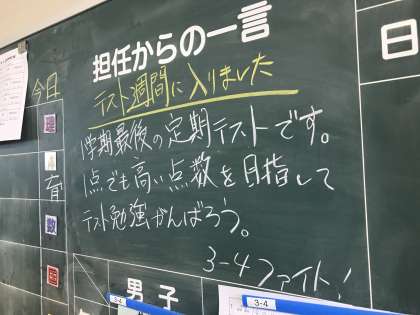 担任からの一言
テスト週間に入りました
1学期最後の定期テストです。
1点でも高い点数を目指して
テスト勉強がんばろう。
3-4ファイト!
今日
日
理
育
数
国
男子
3-4
3-4